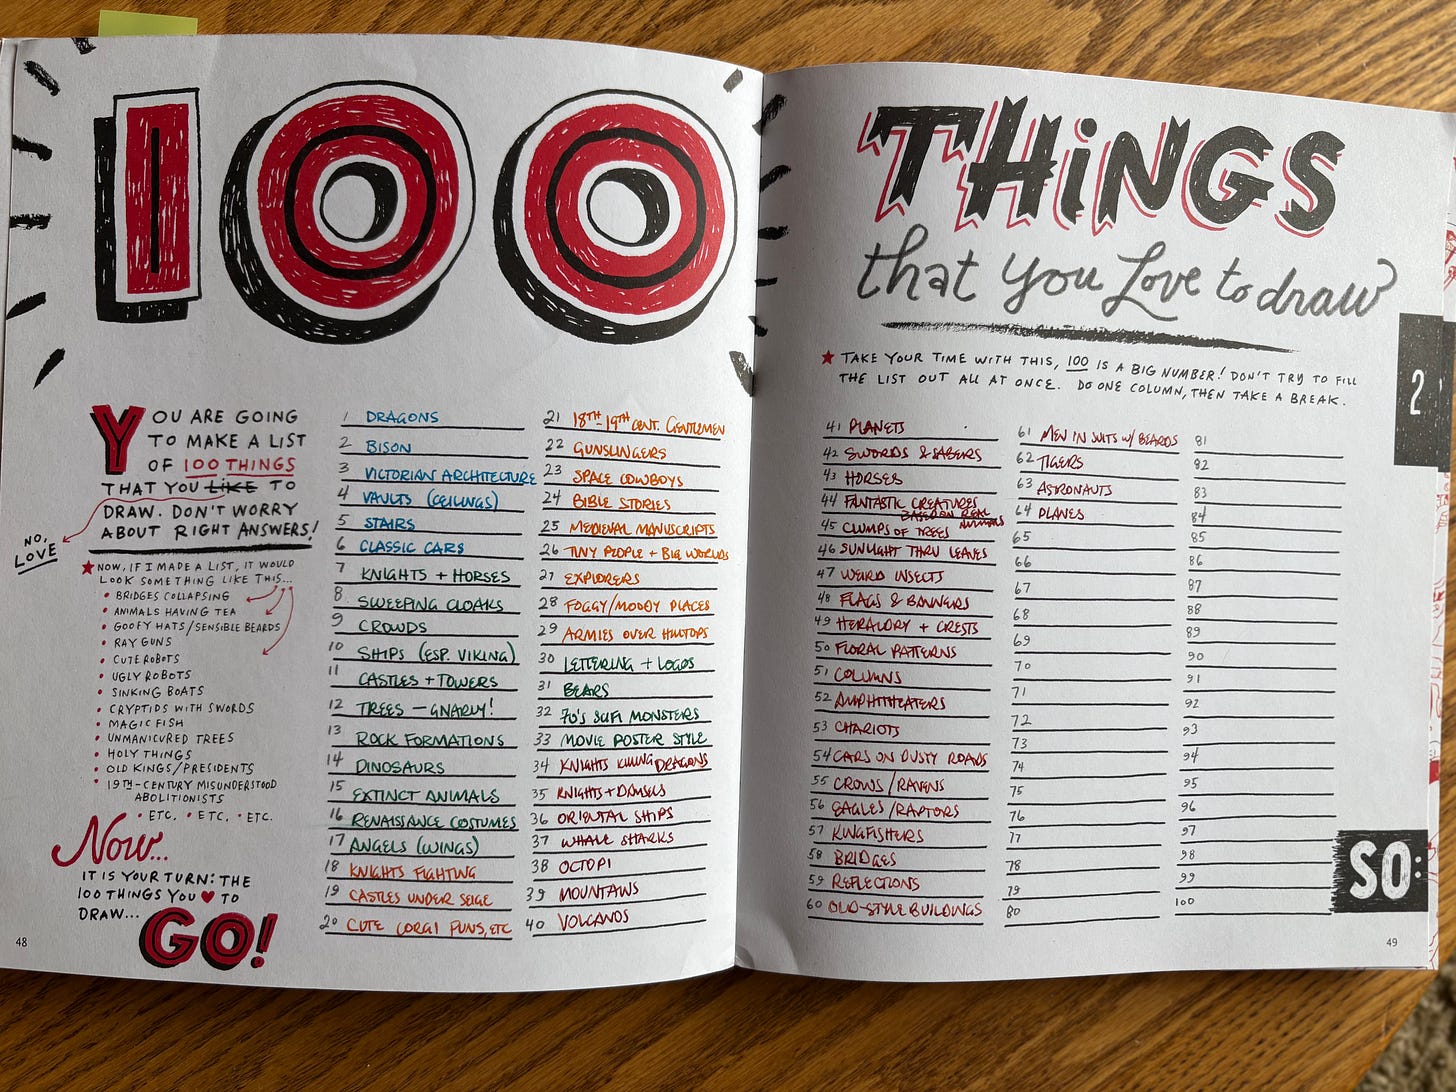 100
YOU ARE GOING
TO MAKE A LIST
OF 100 THINGS
THAT YOU LIKE TO
DRAW. DON'T WORRY
ABOUT RIGHT ANSWERS!
NO,
LOVE
NOW, IF I MADE A LIST, IT WOULD
LOOK SOMETHING LIKE THIS...
• BRIDGES COLLAPSING
• ANIMALS HAVING TEA
• GOOFY HATS/SENSIBLE BEARDS
• RAY GUNS
• CUTE ROBOTS
• UGLY ROBOTS
• SINKING BOATS
• CRYPTIDS WITH SWORDS
• MAGIC FISH
• UNMANICURED TREES
• HOLY THINGS
• OLD KINGS/PRESIDENTS
• 19TH-CENTURY MISUNDERSTOOD
ABOLITIONISTS
• ETC. • ETC. • ETC.
Now...
IT IS YOUR TURN: THE
100 THINGS YOU ♥ TO
DRAW...
GO!
48
1 DRAGONS
2 BISON
3 VICTORIAN ARCHITECTURE
4 VAULTS (CEILINGS)
5 STAIRS
6 CLASSIC CARS
7 KNIGHTS + HORSES
8 SWEEPING CLOAKS
9 CROWDS
10 SHIPS (ESP. VIKING)
11 CASTLES + TOWERS
12 TREES — GNARLY!
13 ROCK FORMATIONS
14 DINOSAURS
15 EXTINCT ANIMALS
16 RENAISSANCE COSTUMES
17 ANGELS (WINGS)
18 KNIGHTS FIGHTING
19 CASTLES UNDER SEIGE
20 CUTE CORGI PUNS, ETC
21 18TH-19TH CENT. GENTLEMEN
22 GUNSLINGERS
23 SPACE COWBOYS
24 BIBLE STORIES
25 MEDIEVAL MANUSCRIPTS
26 TINY PEOPLE + BIG WORLDS
27 EXPLORERS
28 FOGGY/MOODY PLACES
29 ARMIES OVER HILLTOPS
30 LETTERING + LOGOS
31 BEARS
32 70'S SCIFI MONSTERS
33 MOVIE POSTER STYLE
34 KNIGHTS KILLING DRAGONS
35 KNIGHTS + DAMSELS
36 ORIENTAL SHIPS
37 WHALE SHARKS
38 OCTOPI
39 MOUNTAINS
40 VOLCANOS
THINGS
that you Love to draw
TAKE YOUR TIME WITH THIS, 100 IS A BIG NUMBER! DON'T TRY TO FILL
THE LIST OUT ALL AT ONCE. DO ONE COLUMN, THEN TAKE A BREAK.
41 PLANETS
42 SWORDS & SABERS
43 HORSES
44 FANTASTIC CREATURES
BASED ON REAL
ANIMALS
45 CLUMPS OF TREES
46 SUNLIGHT THRU LEAVES
47 WEIRD INSECTS
48 FLAGS & BANNERS
49 HERALDRY + CRESTS
50 FLORAL PATTERNS
51 COLUMNS
52 AMPHITHEATERS
53 CHARIOTS
54 CARS ON DUSTY ROADS
55 CROWS/RAVENS
56 EAGLES/RAPTORS
57 KINGFISHERS
58 BRIDGES
59 REFLECTIONS
60 OLD-STYLE BUILDINGS
61 MEN IN SUITS W/ BEARDS
62 TIGERS
63 ASTRONAUTS
64 PLANES
65
66
67
68
69
70
71
72
73
74
75
76
77
78
79
80
81
82
83
84
85
86
87
88
89
90
91
92
93
94
95
96
97
98
99
100
2
SO:
49